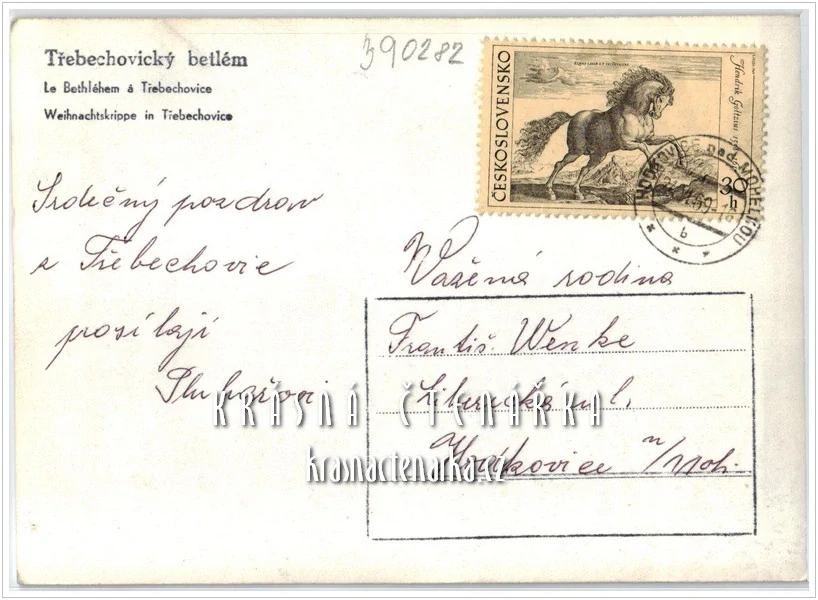 Třebechovický betlém
Le Bethléhem á Třebechovice
Weihnachtskrippe in Třebechovice
390282
ČESKOSLOVENSKO
Hendrik Goltzius
30
h
nad MOHELKOU
b
Srdečný pozdrav
z Třebechovic
posílají
Vážená rodina
Františ. Wenke
Liberecká ul.
n/Moh.
KRÁSNÁ ČTENÁŘKA
krasnactenarka.cz